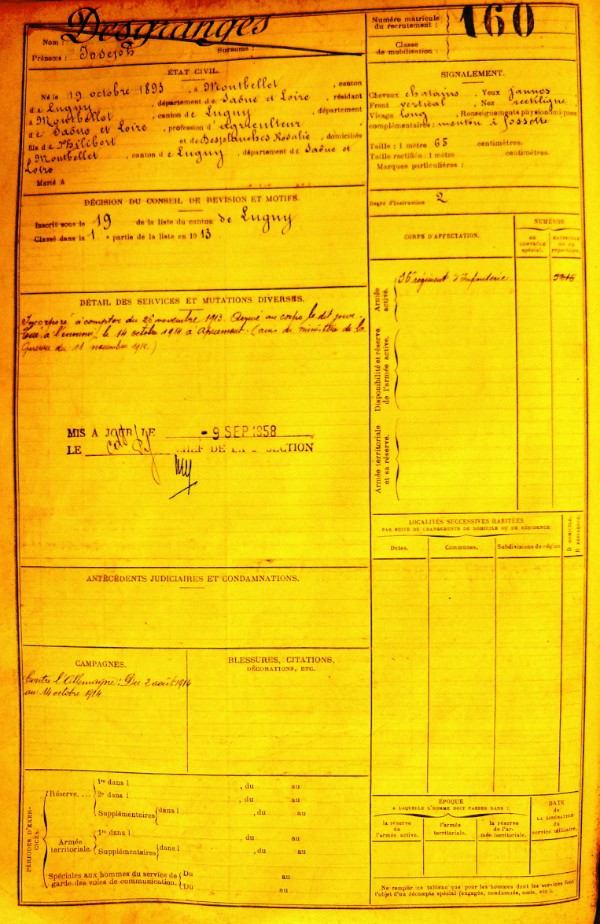 Nom : Desgranges
Prénoms : Joseph Surnoms :
Numéro matricule
du recrutement : 160
Classe
de mobilisation :
ÉTAT CIVIL.
Né le 19 octobre 1893, à Montbellet, canton
de Lugny, département de Saône et Loire, résidant
à Montbellet, canton de Lugny, département
de Saône et Loire, profession d'agriculteur
fils de Philibert et de Desplanches Rosalie, domiciliés
à Montbellet, canton de Lugny, département de Saône et
Loire
Marié à
SIGNALEMENT.
Cheveux chatains. Yeux jaunes
Front vertical, Nez rectiligne
Visage long, Renseignements physionomiques
complémentaires : menton à fossette
Taille : 1 mètre 65 centimètres.
Taille rectifiée : 1 mètre centimètres.
Marques particulières :
Degré d'instruction 2
DÉCISION DU CONSEIL DE RÉVISION ET MOTIFS.
Inscrit sous le n° 19 de la liste du canton de Lugny
Classé dans la 1e partie de la liste en 1913
CORPS D'AFFECTATION.
NUMÉROS
Armée
active.
56e régiment d'Infanterie
Disponibilité et réserve
de l'armée active.
Armée territoriale
et sa réserve.
DÉTAIL DES SERVICES ET MUTATIONS DIVERSES.
Incorporé à compter du 26 novembre 1913. Arrivé au corps le dit jour
Tué à l'ennemi le 14 octobre 1914 à Apremont (avis du ministère de la
Guerre du 11 novembre
MIS A JOUR LE - 9 SEP 1958
LE CHEF DE LA SECTION
LOCALITÉS SUCCESSIVES HABITÉES
PAR SUITE DE CHANGEMENTS DE DOMICILE OU DE RÉSIDENCE
Dates. Communes. Subdivisions de région D. DOMICILE. R. RÉSIDENCE.
ANTÉCÉDENTS JUDICIAIRES ET CONDAMNATIONS.
CAMPAGNES.
Contre l'Allemagne : Du 2 août 1914
au 14 octobre 1914
BLESSURES, CITATIONS,
DÉCORATIONS, ETC.
PÉRIODES D'EXERCICES.
Réserve.... 1re dans l , du au
2e dans l , du au
Supplémentaires dans l , du au
Armée
territoriale. 1re dans l , du au
Supplémentaires dans l , du au
Spéciales aux hommes du service de
garde des voies de communication. Du au
Du au
ÉPOQUE
A LAQUELLE L'HOMME DOIT PASSER DANS :
la réserve
de
l'armée active.
l'armée
territoriale.
la réserve
de l'armée territoriale.
DATE
de
LA LIBÉRATION
du
service militaire.
Ne remplir ce tableau que pour les hommes dont les services font
l'objet d'un décompte spécial (engagés, condamnés, omis, etc.).